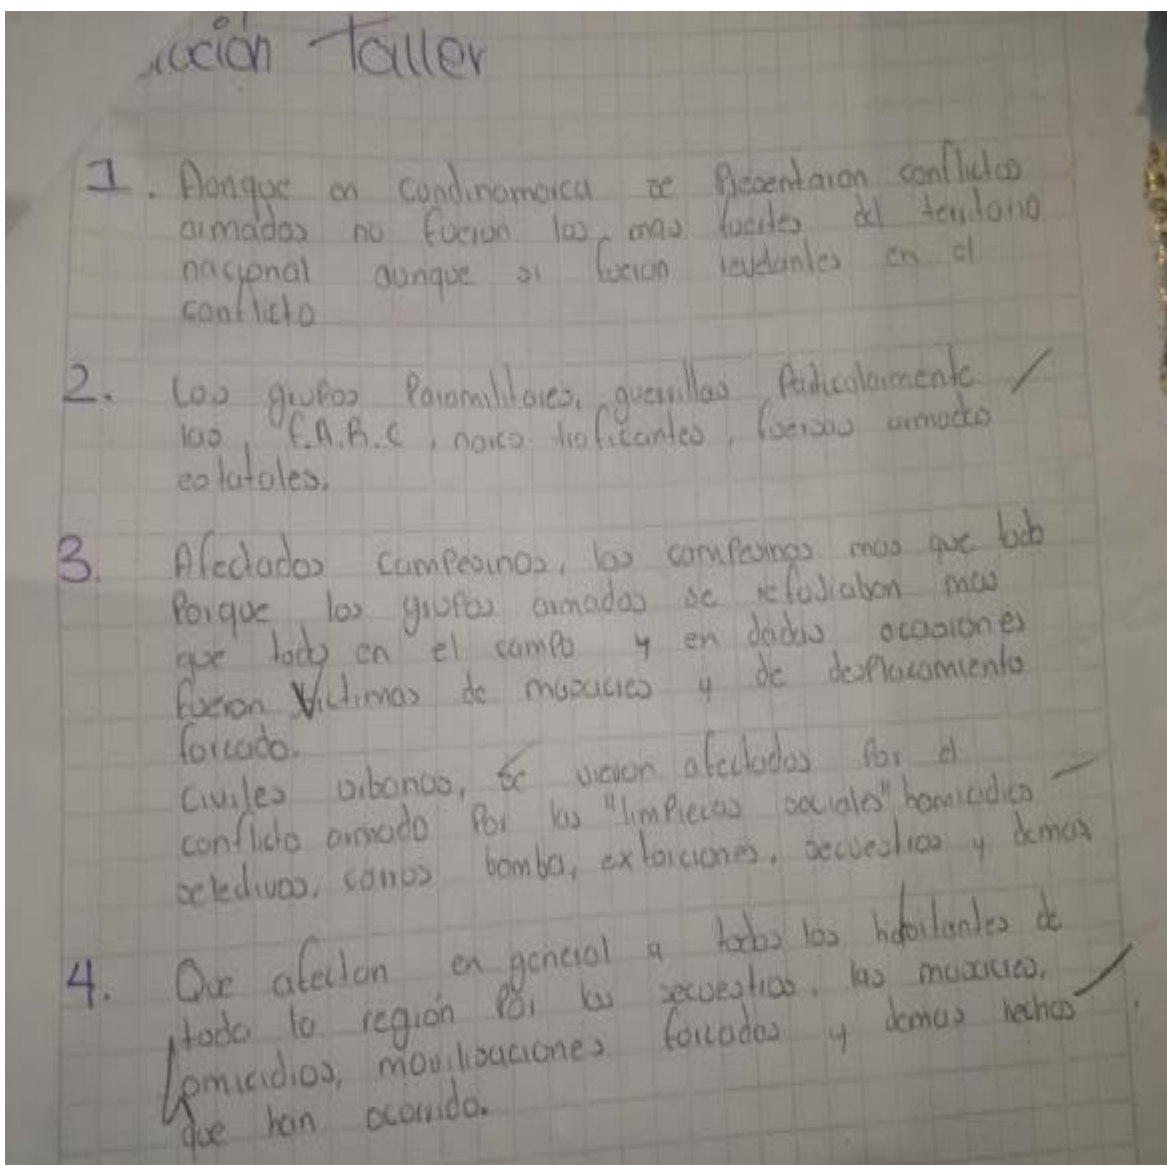 ución Taller
1. Aonque en Condinamarca se Presentaron conflictos
armados no fueron los mas fuertes del territorio
nacional aunque si fueron revelantes en el
conflicto
2. Los grupos Paramilitares, guerrillas Particolarmente
las, F.A.R.C, narco traficantes, fuersas armadas
estatales.
3. Afectados Campesinos, los campesinos mas que todo
Porque los grupos armados se refudiaban mas
que todo en el campo y en dadas ocasiones
fueron Victimas de masacres y de desplazamiento
forzado.
Civiles orbanos, se vieron afectados Por el
conflicto armado Por las "limpiezas sociales" homicidios
selectivos, carros bomba, extorciones, secuestros y demas
4. Que afectan en general a todos los habitantes de
toda la región Por los secuestros, las masacres,
homicidios, movilizaciones forzadas y demas hechos
que han ocorrido.